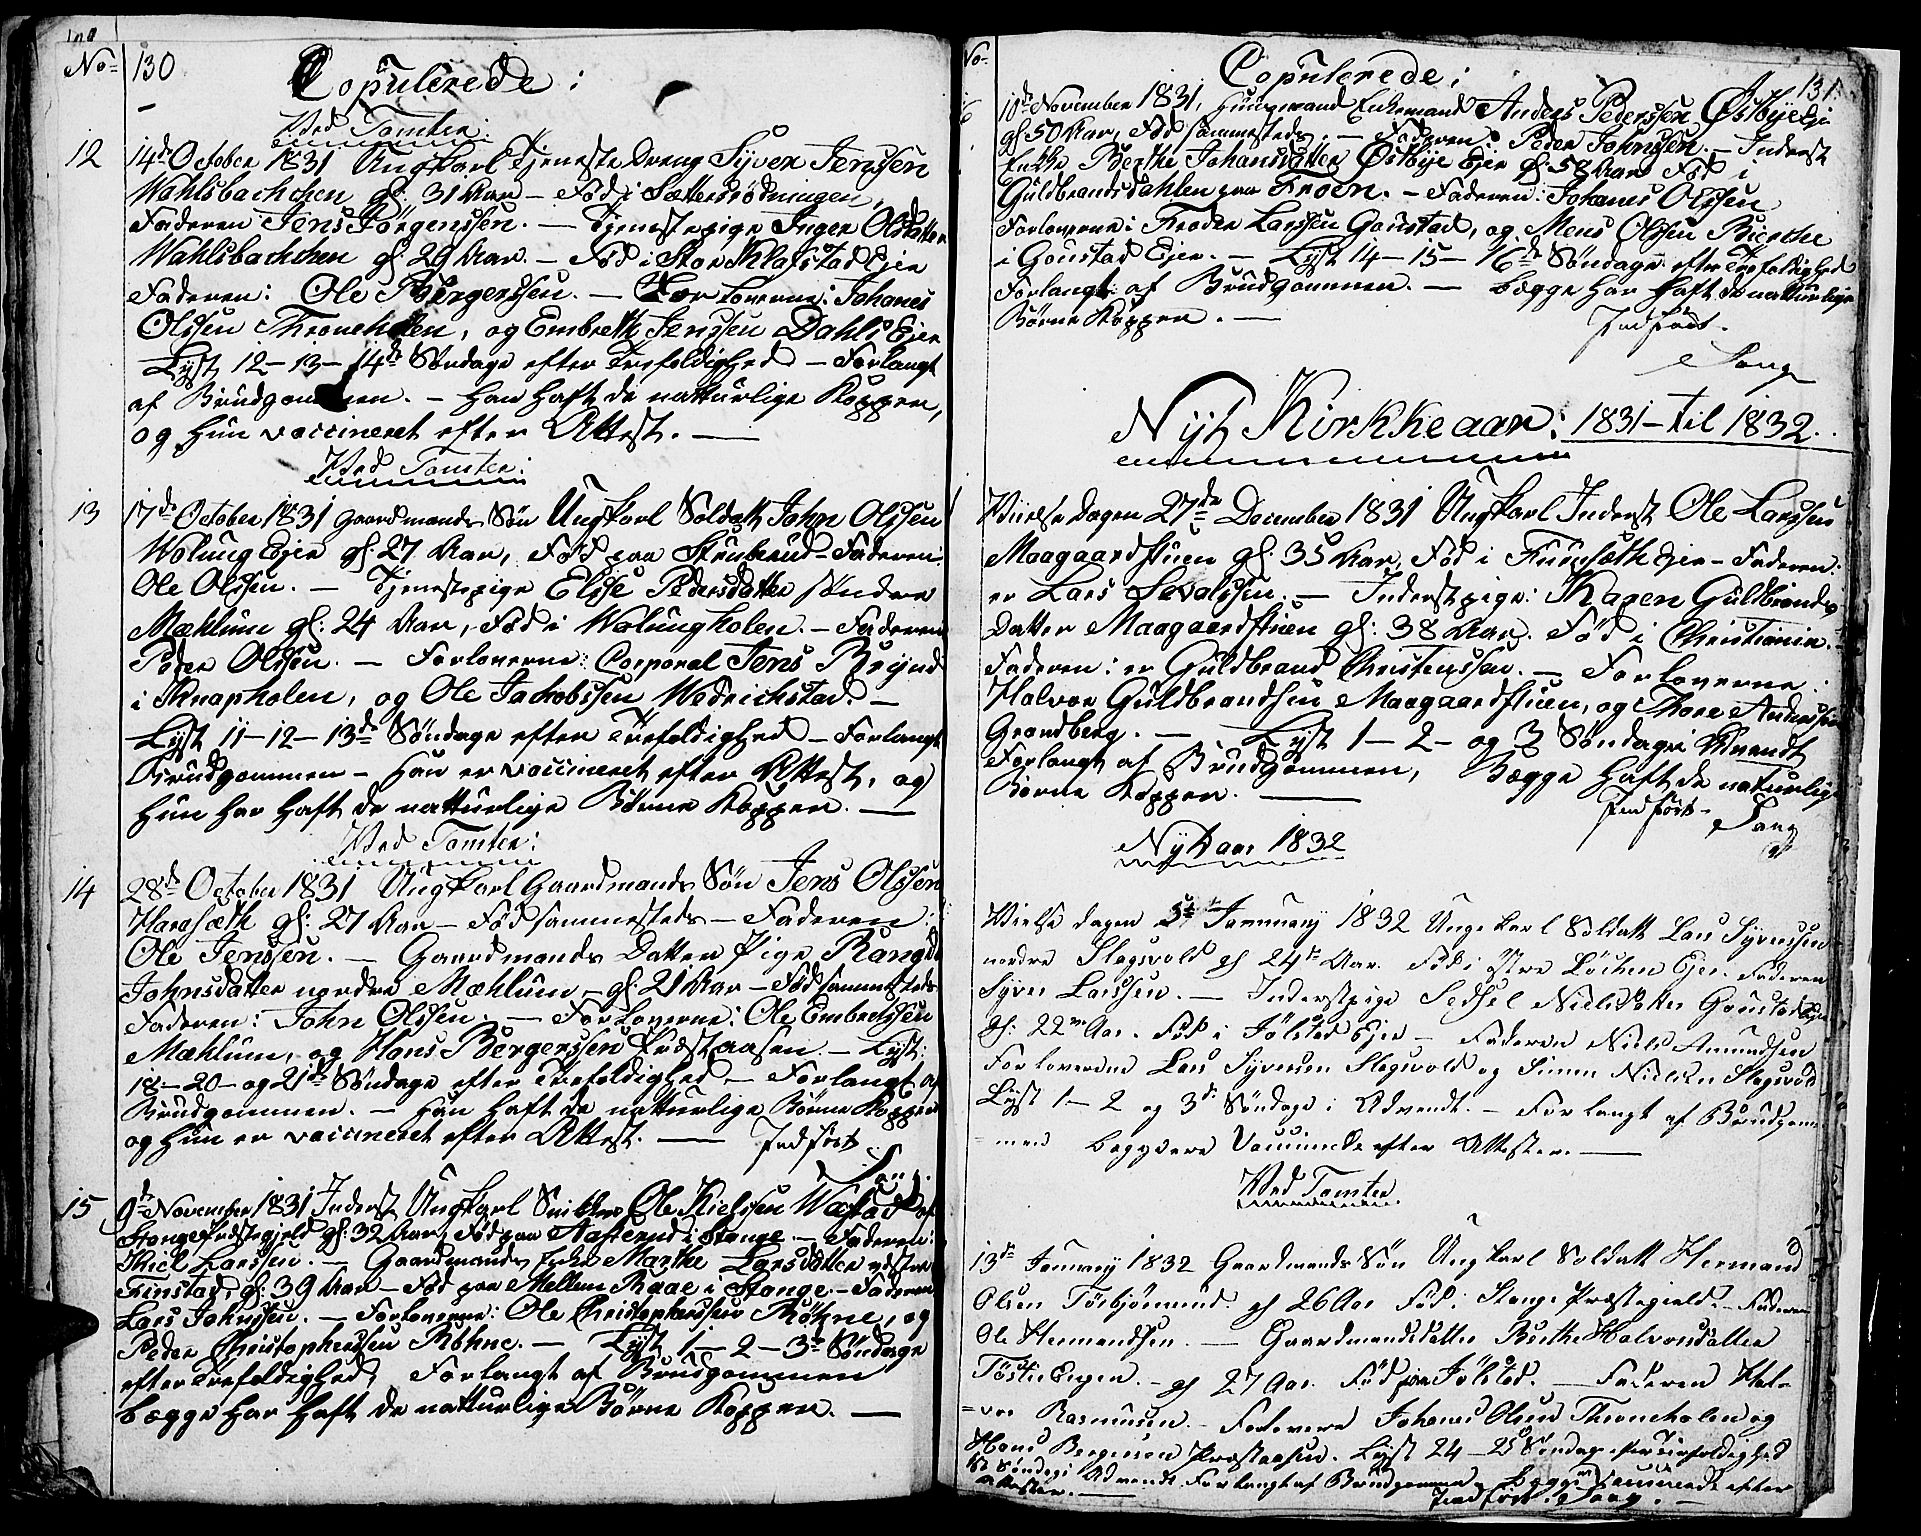 No
130
Copulerede:
Ved Tomter:
12
14de October 1831 Ungkarl Tjeneste Dreng Syver Jenssen
Wahlsbachchen gl: 31 Aar – Fød i Sættersrødningen,
Faderen Jens Jørgenssen. – Tjenestepige Inger Olsdatter
Wahlsbachchen gl: 29 Aar. – Fød i Stor Eier
Faderen: Ole Børgerssen. – Forloverne: Johanes
Olssen Throneholen, og Embreth Jenssen Dahls Ejer
Lyst 12 – 13 – 14de Søndage efter Trefoldighed – Forlangt
af Brudgommen. – han haft de naturlige Kopper,
og hun vaccineret efter Attest. —
Ved Tomter:
13
17de October 1831 Gaardmands Søn Ungkarl Soldatt John Olssen
Wolung Ejer gl: 27 Aar, Fød paa Stenbrud – Faderen:
Ole Olssen. – Tjenestepige Elsse Pedersdatter søndere
Mæhlum gl: 24 Aar, Fød i Wolungholen. – Faderen
Peder Olssen. – Forloverne: Corporal Jens Brynd
i Knapholen, og Ole Jachobssen Wedrichstad. –
Lyst 11 – 12 – 13de Søndage efter Trefoldighed – Forlangt
Brudgommen – han er vaccineret efter Attest, og
hun har haft de natturlige Børne Kopper. —
Ved Tomter:
14
28de October 1831 Ungkarl Gaardmands Søn Jens Olssen
Harasæth gl: 27 Aar – Fød sammesteds – Faderen:
Ole Jenssen. – Gaardmands Datter Pige Rangdi
Johnsdatter nordre Mæhlum – gl: 21 Aar – Fød sammesteds
Faderen: John Olssen. – Forloverne: Ole Embretssen
Mæhlum, og Hans Børgerssen Præstaasen. – Lyst:
18 – 20 – og 21de Søndage efter Trefoldighed – Forlangt af
Brudgommen. – han haft de natturlige Børne Kopper
og hun er vaccineret efter Attest. — Indført
Sang.
15
9de November 1831 Inderst Ungkarl Snikker Ole Kielssen Wæstad af
Stange Præstegjeld gl: 32 Aar, Fød paa i Stange – Faderen:
Kiel Larssen. – Gaardmands Enke Marthe Larsdatter ydstre
Finstad, gl: 39 Aar – Fød paa Mellem Raae i Stange. – Faderen
Lars Johnssen. – Forloverne: Ole Christopherssen Røhne, og
Peder Christopherssen Røhne. – Lyst 1 – 2 – 3de Søndage
efter Trefoldighed, Forlangt af Brudgommen
begge har haft de natturlige Børne Kopper. —
No
131.
Copulerede:
November 1831, Enkemand Anders Pederssen Østbye Eje
gl: 50 Aar, Fød sammesteds. – Faderen: Peder Johnssen. – Inderst
Enke Berthe Johansdatter Østbye Ejer gl: 58 Aar Fød i
Guldbrandsdahlen paa Froen. – Faderen: Johanes Olssen
Forloverne: Larssen Goustad, og Mons Olssen Bierche
i Goustad Ejer. – Lyst 14 – 15 – 16de Søndage efter Trefoldighed
Forlangt af Brudgommen. – begge har haft de natturlige
Børne Kopper. — Indført.
Sang
Nyt Kirkkeaar: 1831 – til 1832.
1
Vielse dagen 27de December 1831 Ungkarl Inderst Ole Larssen
Maagaardstuen gl: 35 Aar, Fød i Furusæth Ejer – Faderen:
er Lars Sevalssen. – Inderstpige: Karen Guldbrands
Datter Maagaardstuen gl: 38 Aar. Fød i Christiania.
Faderen: er Guldbrand Christenssen. – Forloverne:
Halvor Guldbrandsen Maagaardstuen, og Thore Anderssen
Grandberg. – Lyst 1 – 2 – og 3 Søndage i Advendt
Forlangt af Brudgommen, Begge haft de naturlige
Børne Kopper. — Indført
Sang
Nyt aar 1832
Vielse dagen 5te January 1832 Ungkarl Soldatt Lars Syverssen
nordre Slagsvold gl 24de Aar. Fød i Løchen Ejer. Faderen
Syver Larssen. – Inderstpige Sedsel Nielsdatter Goustad Eje
gl: 22 Aar. Fød i Jølstad Ejer – Faderen Niels Amundsen
Forloverne Lars Syversen Slagsvold og Simen Nielsen Slagsvold
Lyst 1 – 2 og 3de Søndage i Advendt. – Forlangt af Brudgom-
=men begge Vaccinerede efter Attester. —
Ved Tomter.
13de January 1832 Gaardmands Søn Ungkarl Soldatt Hermand
Olsen Torbjørnrud. gl 26 Aar Fød i Stange Præstegield. – Faderen
Ole Hermandsen. – Gaardmandsdatter Berthe Halvorsdatter
Engen. – gl 27 Aar. Fød paa Jølstad. – Faderen Hal-
=vor Rasmusen. – Forlovere Johanes Olsen Throneholen og
Hans Børgersen Præstaasen. Lyst 24 – 25 Søndag efter Trefoldighed
Søndag i Advendt. Forlangt af Brudgommen. Begge Vaccinerede efter
Attester. — Indført. Sang. –